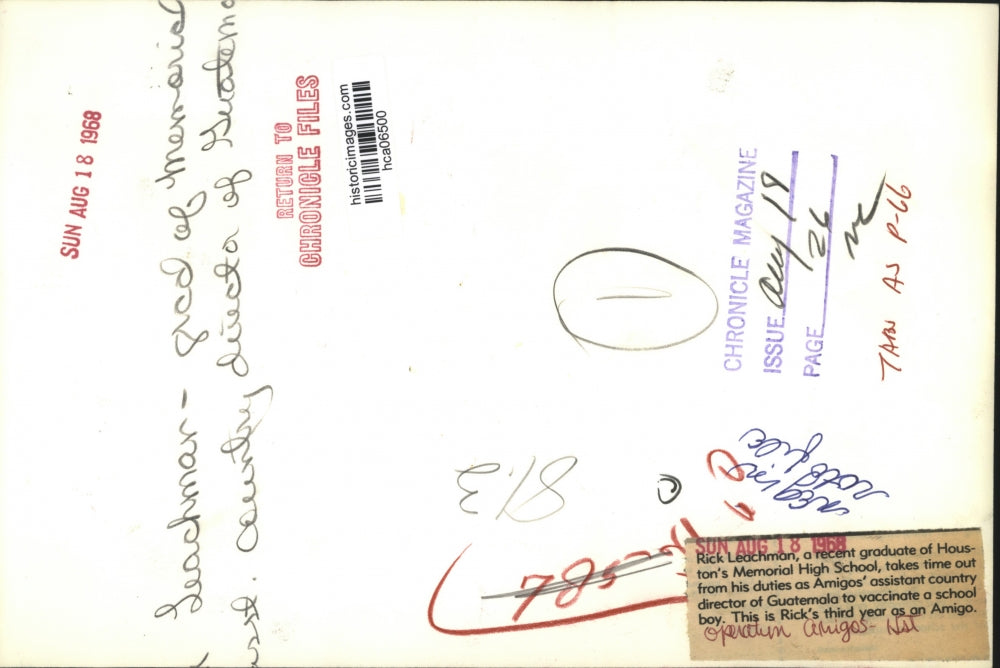 SUN AUG 18 1968
Leachman - grad of Memorial
asst. country director of Guatema
RETURN TO
CHRONICLE FILES
historicimages.com
hca06500
CHRONICLE MAGAZINE
ISSUE Aug 18
PAGE 26
TABN AS P-66
neg in
roto file
81.3
SUN AUG 18 1968
Rick Leachman, a recent graduate of Hous-
ton's Memorial High School, takes time out
from his duties as Amigos' assistant country
director of Guatemala to vaccinate a school
boy. This is Rick's third year as an Amigo.
operation amigos - Hst